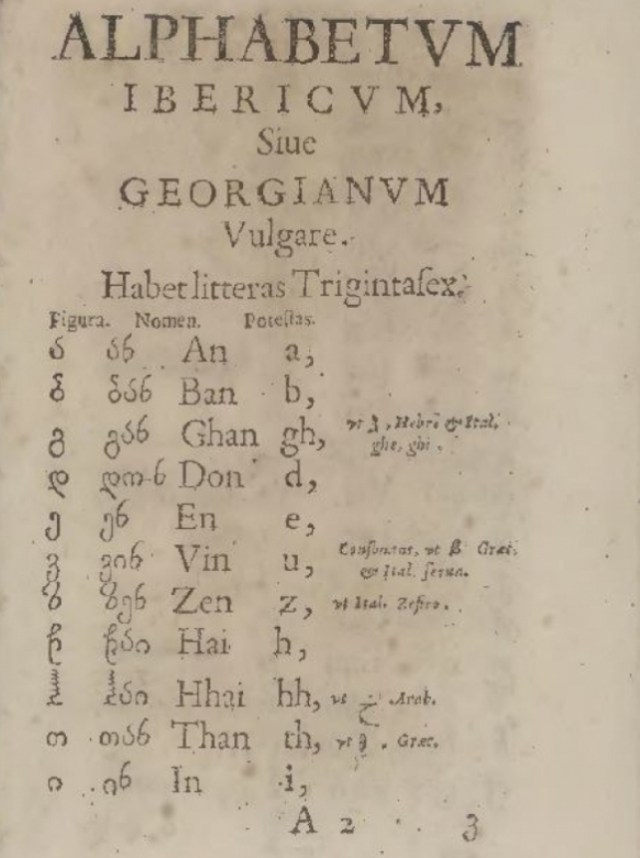 ALPHABETVM
IBERICVM,
Siue
GEORGIANVM
Vulgare.
Habet litteras Trigintaſex.
Figura. Nomen. Poteſtas.
ა ან An a,
ბ ბან Ban b,
გ გან Ghan gh, vt ג, & Ital.
ghe, ghi.
დ დონ Don d,
ე ენ En e,
ვ ვინ Vin u, vt β Græc.
& Ital. ſerua.
ზ ზენ Zen z, vt Ital. Zefiro.
Hai h,
Hhai hh, vt خ Arab.
თ თან Than th, vt ϑ. Græc.
ი ინ In i,
A 2 3